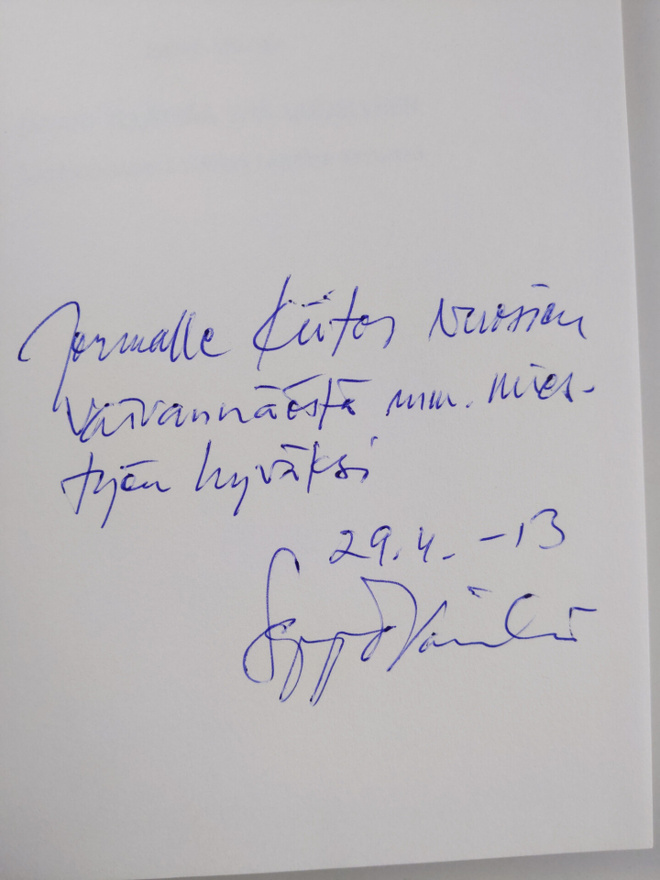 Jormalle Kiitos vuosien
vaivannäöstä mm. mies-
työn hyväksi
29.4. -13
Seppo